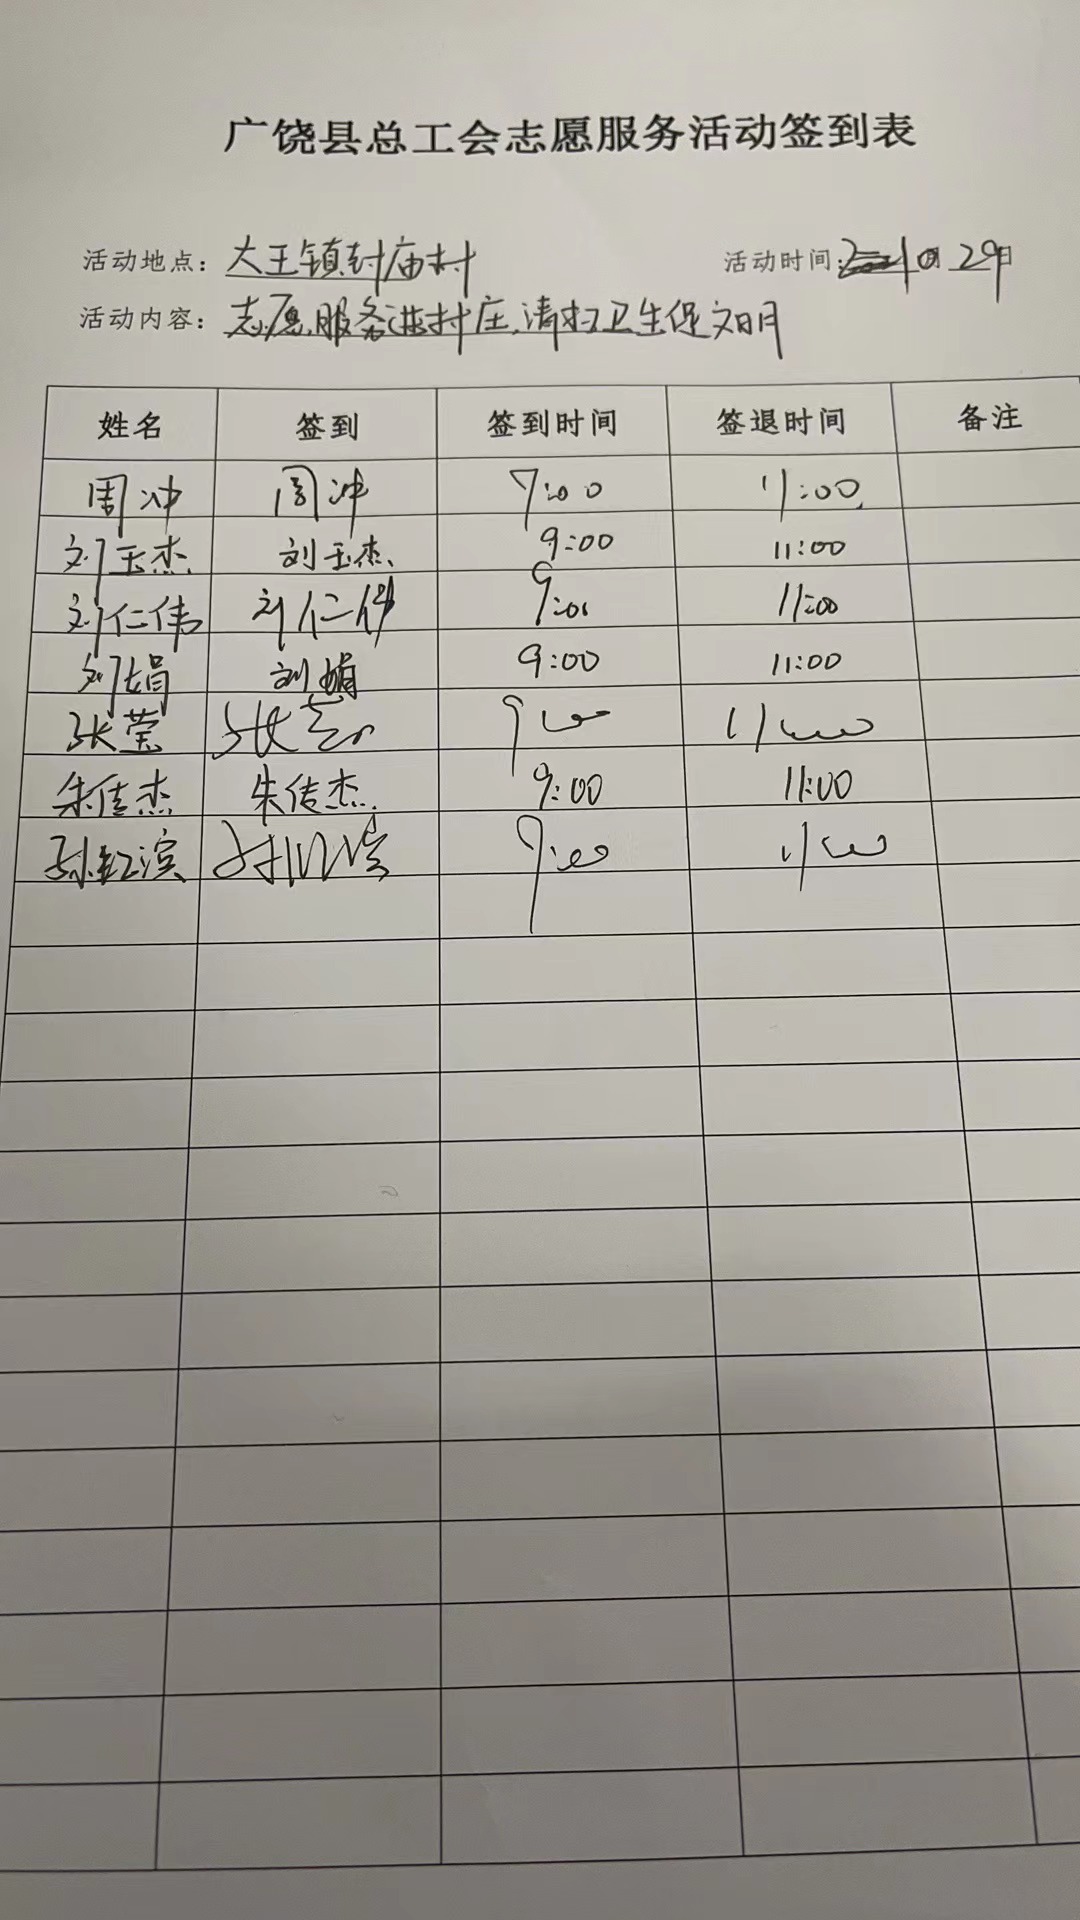 广饶县总工会志愿服务活动签到表
活动地点：大王镇封庙村 活动时间：10月29日
活动内容：志愿服务进村庄，清扫卫生促文明
姓名 签到 签到时间 签退时间 备注
周冲 周冲 9:00 11:00
刘玉杰 刘玉杰 9:00 11:00
刘仁伟 刘仁伟 9:00 11:00
刘娟 刘娟 9:00 11:00
张莹 张莹 9:00 11:00
朱传杰 朱传杰 9:00 11:00
孙红滨 孙红滨 9:00 11:00